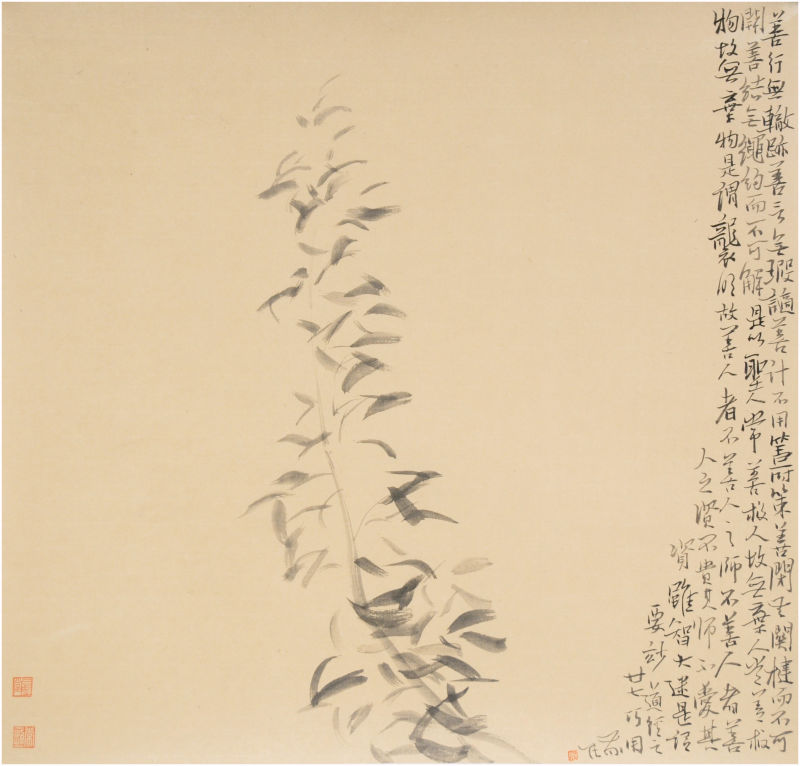 善行無轍跡善言無瑕謫善計不用籌策善閉无關楗而不可
開善結無繩約而不可解是以聖人常善救人故無棄人常善救
物故無棄物是謂襲明故善人者不善人之師不善人者善
人之資不貴其師不愛其
資雖智大迷是謂
要妙 道經之
廿七巧用